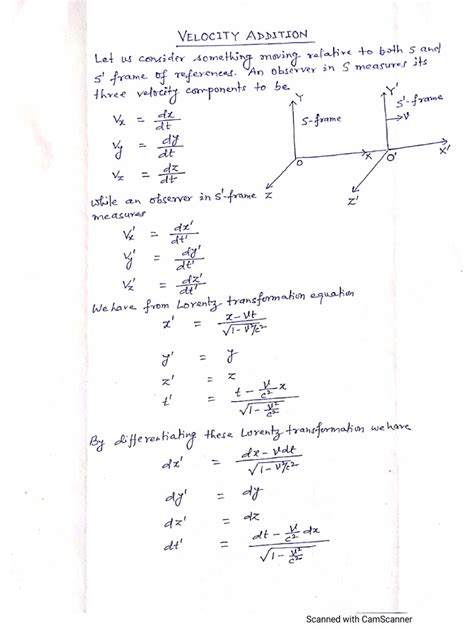 VELOCITY ADDITION
Let us consider something moving relative to both S and
S' frame of references. An observer in S measures its
three velocity components to be
Y
Y'
S-frame
S'-frame
→v
O
X
O'
X'
Z
Z'
Vx = dx/dt
Vy = dy/dt
Vz = dz/dt
While an observer in S'-frame
measures
Vx' = dx'/dt'
Vy' = dy'/dt'
Vz' = dz'/dt'
We have from Lorentz transformation equation
x' = (x - vt)/√(1 - v²/c²)
y' = y
z' = z
t' = (t - (v/c²) x)/√(1 - v²/c²)
By differentiating these Lorentz transformation we have
dx' = (dx - vdt)/√(1 - v²/c²)
dy' = dy
dz' = dz
dt' = (dt - (v/c²) dx)/√(1 - v²/c²)
Scanned with CamScanner